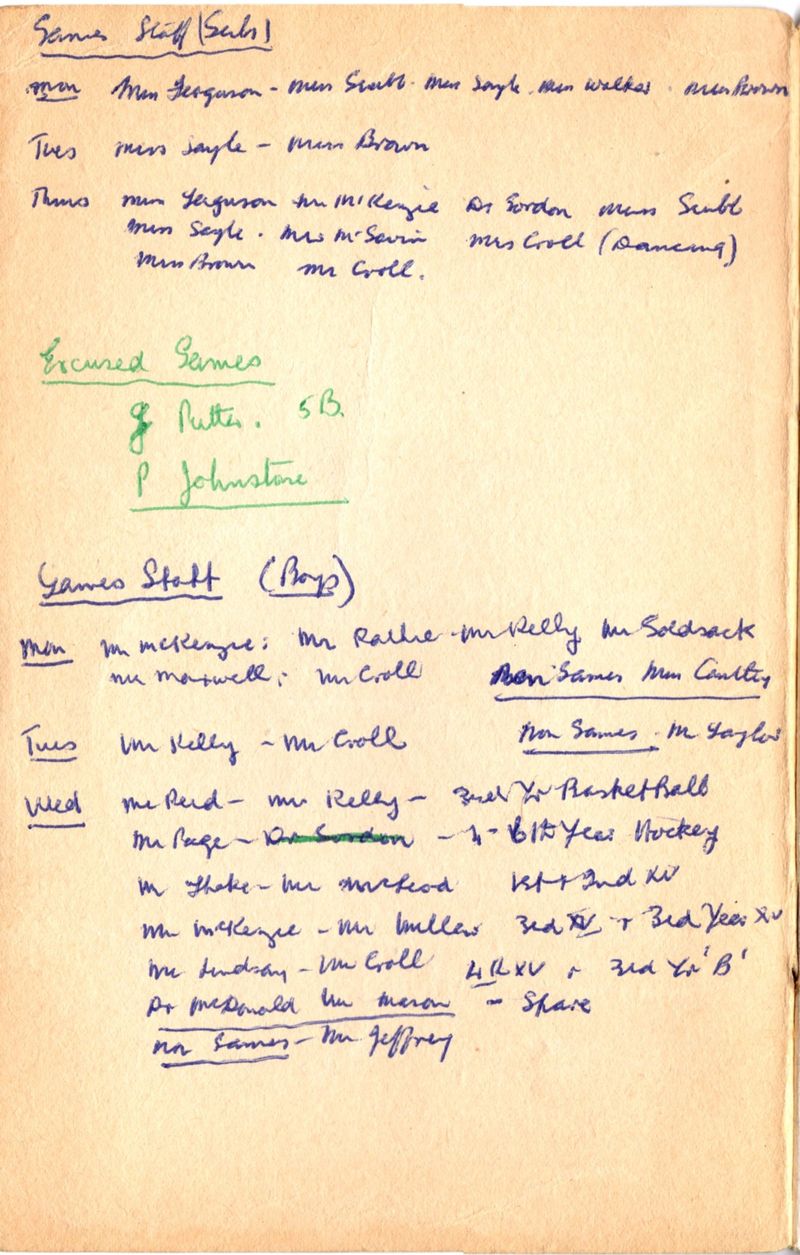 Games Staff (Girls)
Mon Miss Ferguson - Miss Scubt. Miss Sayle. Miss Walker. Miss Brown
Tues Miss Sayle - Miss Brown
Thurs Miss Ferguson Mr McKenzie Dr Gordon Miss
Miss Sayle. Mrs McGavin Mrs Croll (Dancing)
Miss Brown Mr Croll.
Excused Games
J Rutter. 5B.
P Johnstone
Games Staff (Boys)
Mon Mr McKenzie; Mr Rathie - Mr Kelly Mr Goldsack
Mr Maxwell; Mr Croll Non Games Miss
Tues Mr Kelly - Mr Croll Non Games. Mr Taylor
Wed Mr Reid - Mr Kelly - 3rd Yr BasketBall
Mr Page - Dr Gordon - 4 - 6th Year Hockey
Mr Thake - Mr McLeod 1st + 2nd XV
Mr McKenzie - Mr Miller 3rd XV + 3rd Year XV
Mr Lindsay - Mr Croll 4th XV + 3rd Yr 'B'
Dr McDonald Mr Mason - Spare
Non Games - Mr Jeffrey